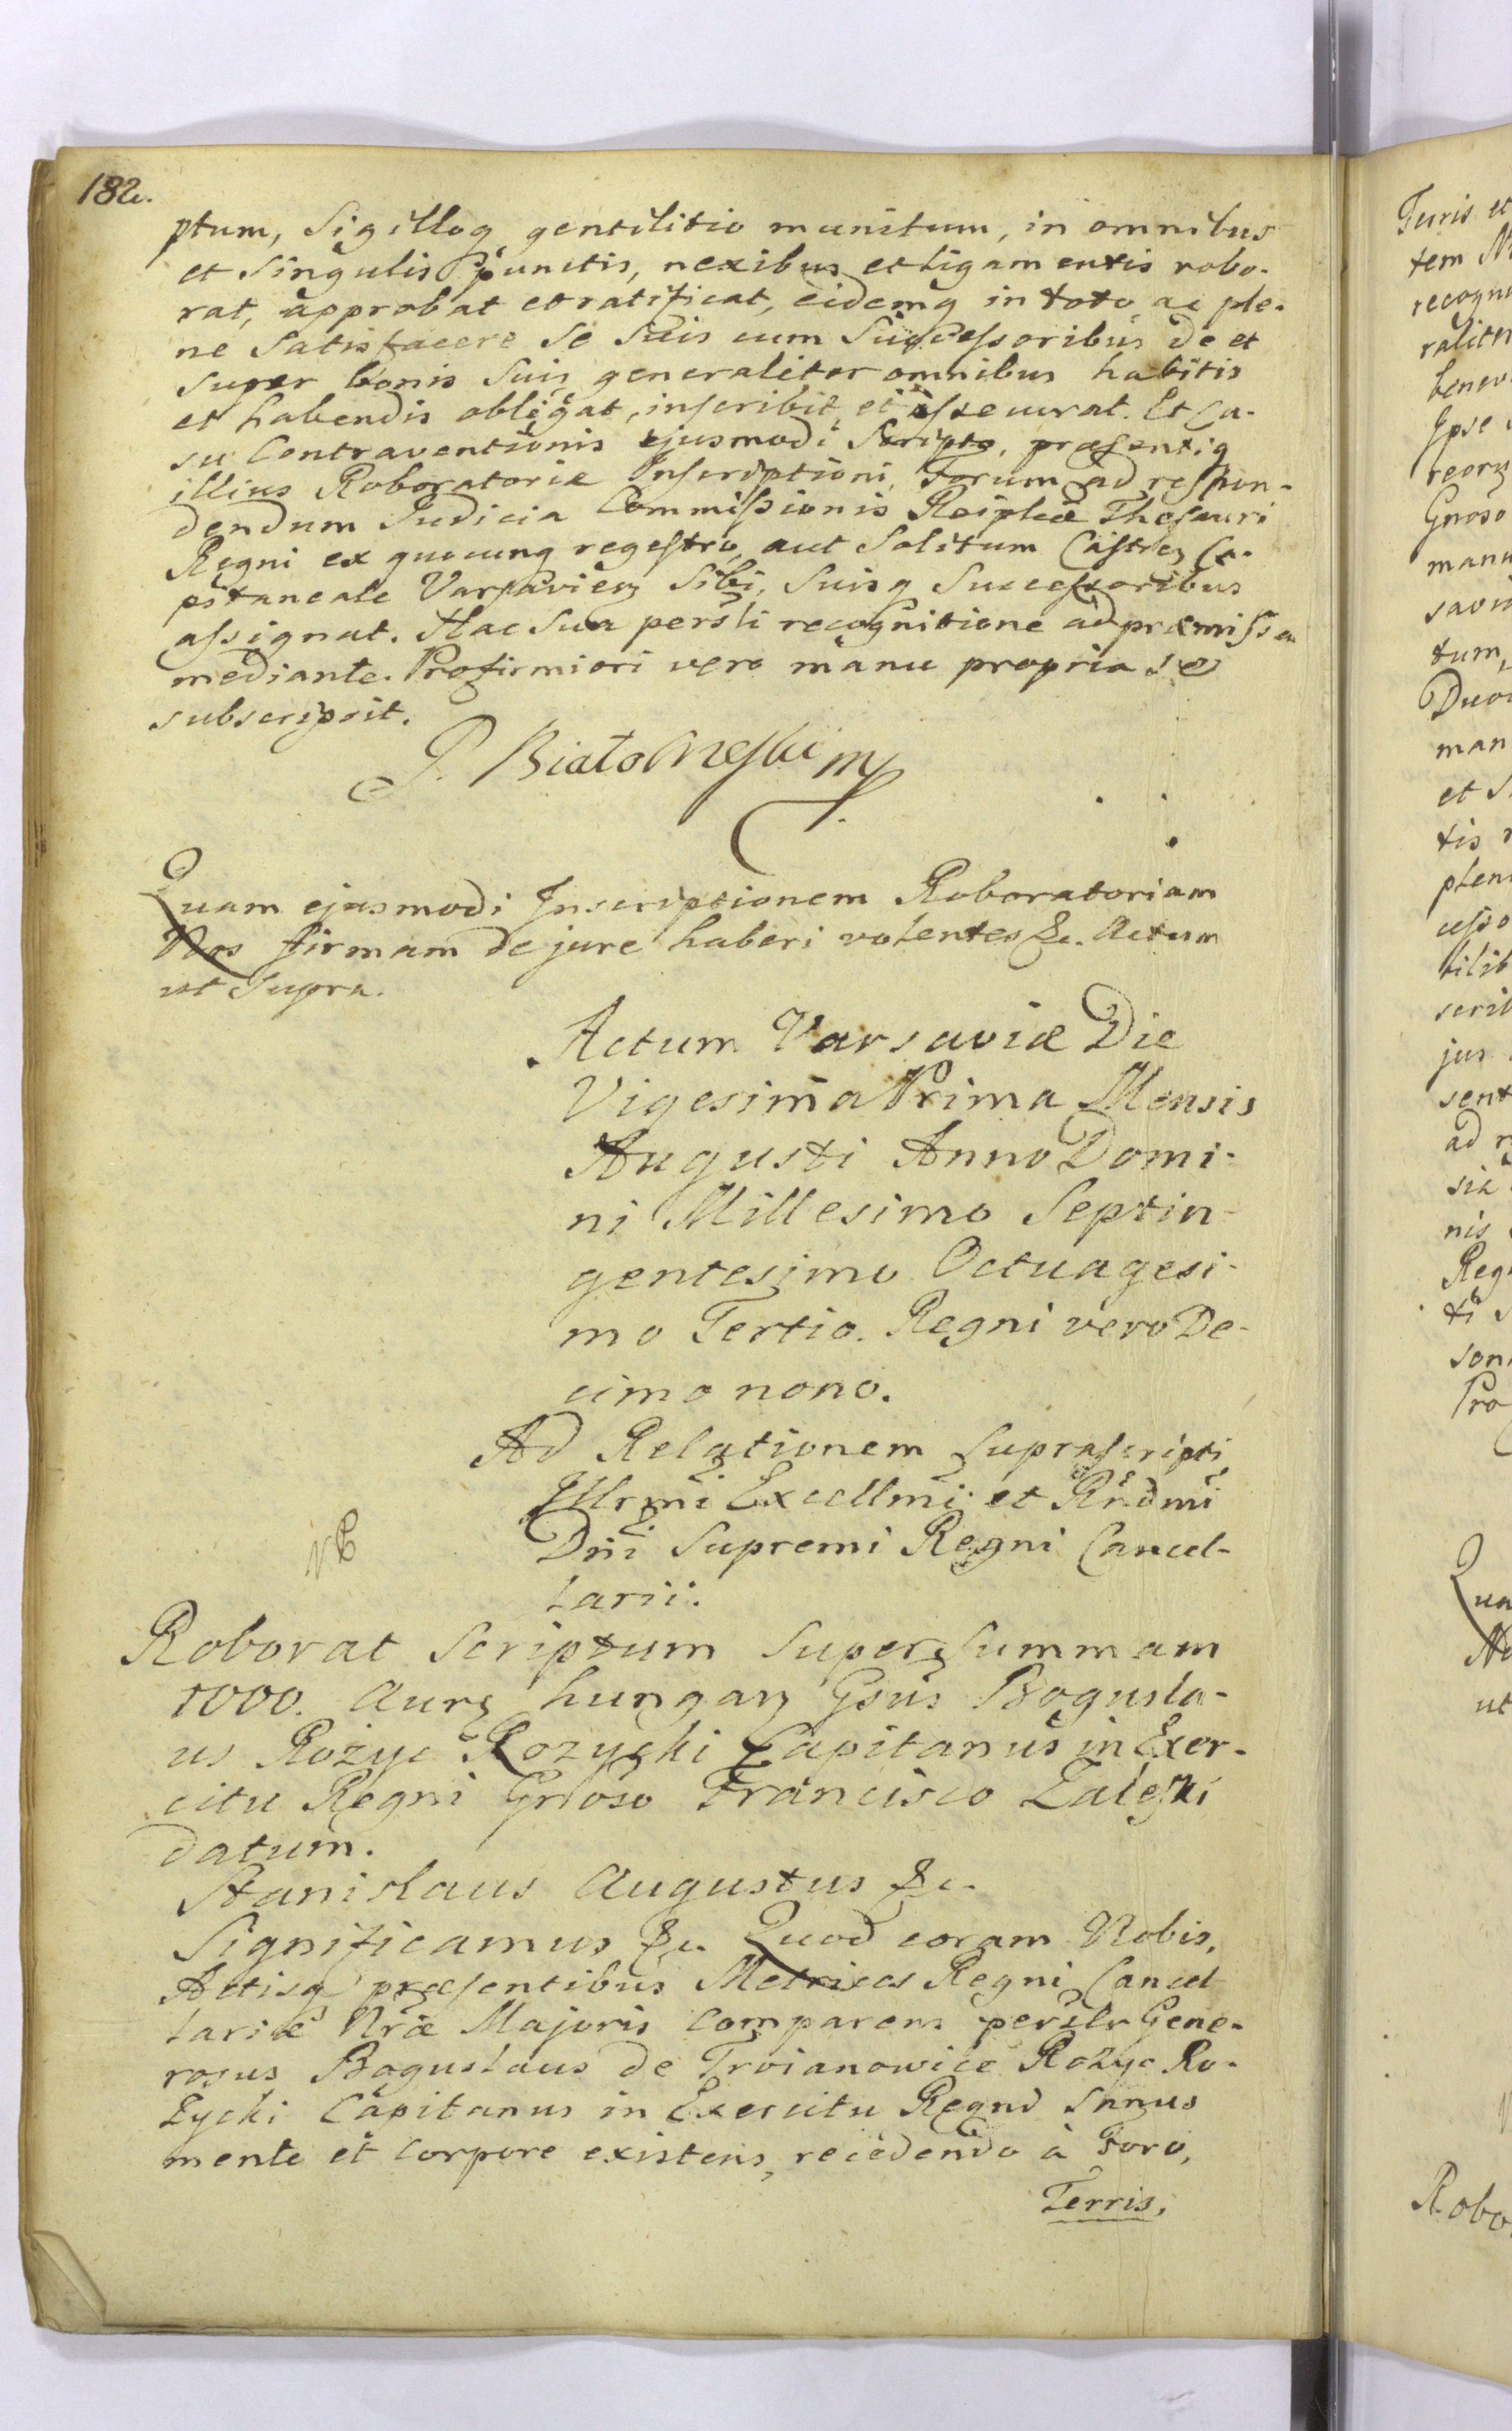 182.
ptum, Sigilloq gentilitio munitum, in omnibus
et Singulis punctis, nexibus et ligamentis robo-
rat, approbat et ratificat, eidemq in toto, ac ple-
ne Satisfacere Se Suis cum Successoribus de et
Super bonis Suis generaliter omnibus habitis
et habendis obligat, inscribit et assecurat. Et Ca-
su Contraventionis ejusmodi Scripto, præsentiq
illius Roboratoriæ Inscriptioni, Forum ad respon-
dendum Judicia Commissionis Reiplcæ Thesauri
Regni ex quocunq regestro, aut Solitum Castren Ca-
pitaneale Varsavien Sibi, Suisq Successoribus
assignat. Hac Sua persli recognitione ad præmissa
mediante. Pro firmiori vero manu propria se
subscripsit.
Quam ejusmodi Inscriptionem Roboratoriam
Nos firmam de jure haberi volentes &c. Actum
ut Supra.
Actum Varsaviæ Die
Vigesima Prima Mensis
Augusti Anno Domi-
ni Millesimo Septin-
gentesimo Octuagesi-
mo Tertio. Regni vero De-
cimo nono.
Ad Relationem Suprascripti
Illrmi Excellmi et Rndmi
Dni Supremi Regni Cancel-
larii.
Roborat Scriptum Super Summam
1000. Aurz hungarz Gsus Bogusla-
us Rożyc Rozycki Capitanus in Exer-
citu Regni Gnoso Francisco Zaleski
datum.
Stanislaus Augustus &c.
Significamus &c. Quod coram Nobis,
Actisq præsentibus Metrices Regni Cancel
lariæ Nræ Majoris Comparens perslr Gene-
rosus Boguslaus de Troianowice Rożyc Ro-
życki Capitanus in Exercitu Regni Sanus
mente et Corpore existens, recedendo à Foro,
Terris,
Juris et
tem
recogn
raliter
benev
Ipse
reorz
Gnoso
manu
savi
tum,
Duo
man
et S
tis
plen
cesso
bilib
scrib
jus
sent
ad r
nis
Regn
ti
son
Pro
Qua
ut
Robo